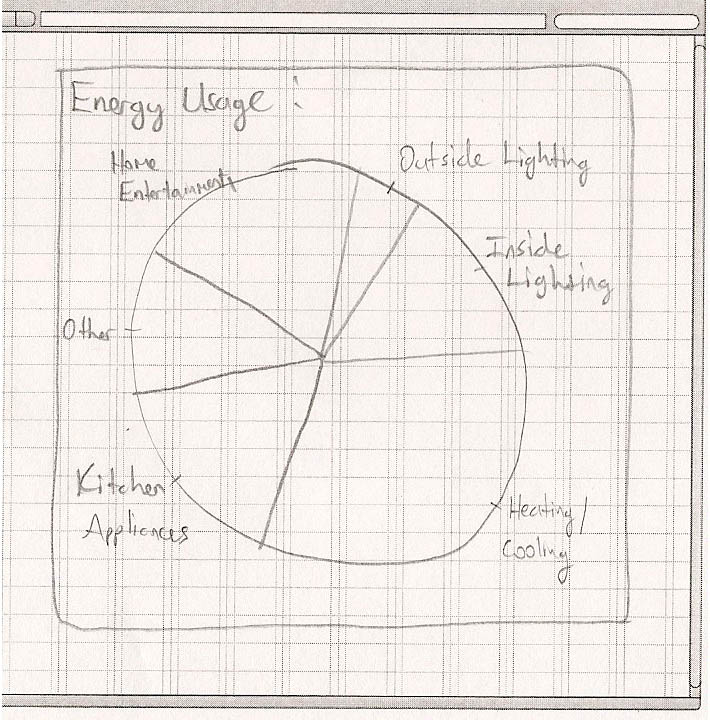 Energy Usage :
Home
Entertainment
Outside Lighting
Inside
Lighting
Other
Kitchen
Appliances
Heating/
Cooling